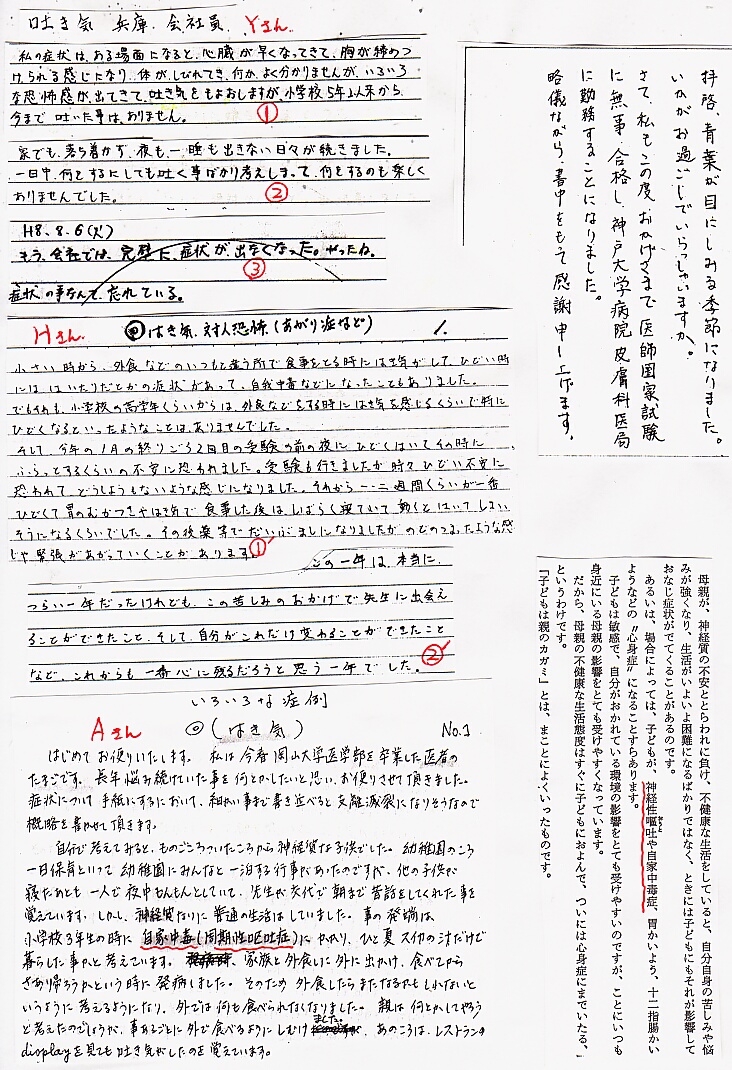 吐き気 兵庫、会社員、Yさん
私の症状は、ある場面になると、心臓が早くなってきて、胸が締めつ
けられる感じになり、体がしびれてき、何か、よく分かりませんが、いろいろ
な恐怖感が、出てきて、吐き気をもよおしますが、小学校5年以来から、
今まで吐いた事は、ありません。
①
家でも、落ち着かず、夜も、一睡も出きない日々が続きました。
一日中、何をするにしても吐く事ばかり考えしまって、何をするのも楽しく
ありませんでした。
②
H8、8、6(火)
もう、会社では、完璧に、症状が、出なくなった。やったね。
③
症状の事なんて、忘れている。
拝啓、青葉が目にしみる季節になりました。
いかがお過ごしでいらっしゃいますか。
さて、私もこの度おかげさまで医師国家試験
に無事合格し、神戸大学病院皮膚科医局
に勤務することになりました。
略儀ながら、書中をもって感謝申し上げます。
Hさん
はき気、対人恐怖、(あがり症など)
小さい時から、外食などのいつもと違う所で食事をとる時にはき気がして、ひどい時
には、はいたりだとかの症状があって、自家中毒などになったこともありました。
でもそれも、小学校の高学年くらいからは、外食などをする時にはき気を感じるくらいで特に
ひどくなるといったようなことは、ありませんでした。
そして、今年の1月の終りごろ2回目の受験の前の夜に、ひどくはいてその時に、
ふらっとするくらいの不安に恐われました。受験も行きましたが時々ひどい不安に
恐われて、どうしようもないような感じになりました。それから一、二週間くらいが一番
ひどくて胃のむかつきやはき気で食事した後は、しばらく寝ていて動くとはいてしまい
そうになるくらいでした。その後薬等でだいぶましになりましたがのどのつまったような感
じや緊張があがっていくことがあります。
①
この一年は、本当に、
つらい一年だったけれども、この苦しみのおかげで先生に出会え
ることができたこと、そして、自分がこれだけ変わることができたこと
など、これからも一番心に残るだろうと思う一年でした。
②
母親が、神経質の不安ととらわれに負け、不健康な生活をしていると、自分自身の苦しみや悩
みが強くなり、生活がいよいよ困難になるばかりではなく、ときには子どもにもそれが影響して
おなじ症状がでてくることがあるのです。
あるいは、場合によっては、子どもが、神経性嘔吐や自家中毒症、胃かいよう、十二指腸かい
ようなどの〝心身症〟になることすらあります。
子どもは敏感で、自分がおかれている環境の影響をとても受けやすいのですが、ことにいつも
身近にいる母親の影響をとても受けやすくなっています。
だから、母親の不健康な生活態度はすぐに子どもにおよんで、ついには心身症にまでいたる、
というわけです。
「子どもは親のカガミ」とは、まことによくいったものです。
いろいろな症例
Aさん ◎(はき気) No.1
はじめてお便りいたします。私は今春岡山大学医学部を卒業した医者の
たまごです。長年悩み続けていた事を何とかしたいと思い、お便りさせて頂きました。
症状について手紙にするにおいて、細かい事まで書き並べると支離滅裂になりそうなので
概略を書かせて頂きます。
自分で考えてみると、ものごころついたころから神経質な子供でした。幼稚園のころ
一日保育といって幼稚園にみんなと一泊する行事があったのですが、他の子供が
寝たあとも一人で夜中もんもんとしていて、先生が交代で朝まで昔話をしてくれた事を
覚えています。しかし、神経質なりに普通の生活はしていました。事の発端は
小学校3年生の時に自家中毒(周期性嘔吐症)にかかり、ひと夏スイカの汁だけで
暮らした事かと考えています。家族と外食しに外に出かけ、食べてから
さあ帰ろうかという時に発病しました。そのため外食したらまたなるかもしれないと
いうように考えるようになり、外では何も食べられなくなりました。親は何とかしてやろう
と考えたのでしょうが、事あるごとに外で食べるようにしむけました。あのころは、レストランの
displayを見ても吐き気がしたのを覚えています。